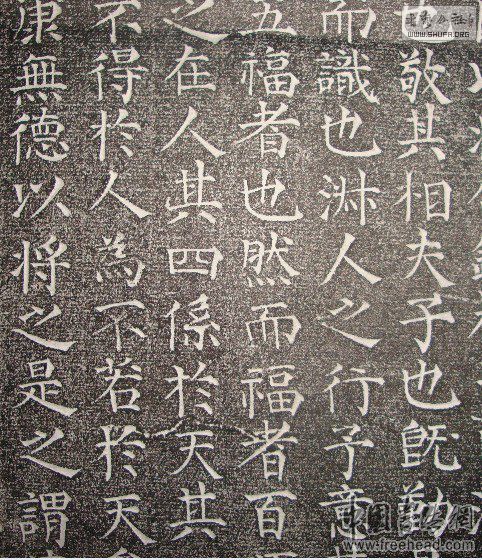 敬其夫子也既勤
而識也人之行予
五福者也然而福者百
之在人其四係於天其
不得於人為不若於天
康無德以將之是之謂
WWW.SHUFA.ORG
www.freehead.com